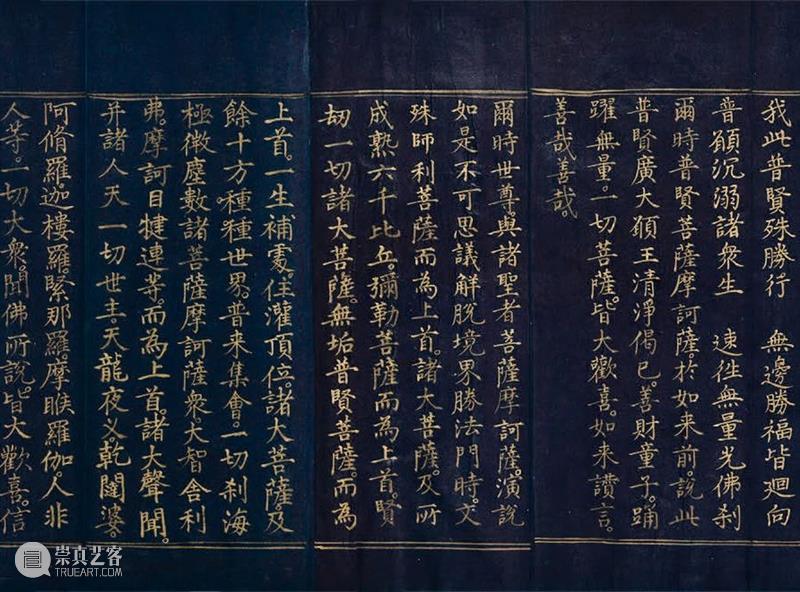 我此普賢殊勝行　無邊勝福皆迴向
普願沉溺諸衆生　速徃無量光佛刹
爾時普賢菩薩摩訶薩。於如来前。說此
普賢廣大願王清淨偈已。善財童子。踊
躍無量。一切菩薩。皆大歡喜。如来讃言。
善哉善哉。
爾時世尊。與諸聖者菩薩摩訶薩。演說
如是不可思議解脫境界勝法門時。文
殊師利菩薩而為上首。諸大菩薩。及所
成熟六千比丘。彌勒菩薩而為上首。賢
劫一切諸大菩薩。無垢普賢菩薩。而為
上首。一生補處。住灌頂位。諸大菩薩。及
餘十方。種種世界。普来集會。一切刹海
極微塵數諸菩薩摩訶薩衆。大智舍利
弗。摩訶目犍連等。而為上首。諸大聲聞。
并諸人天一切世主天龍夜乂。乾闥婆。
阿脩羅。迦樓羅。緊那羅。摩睺羅伽。人非
人等。一切大衆。聞佛所說。皆大歡喜。信
崇真艺客
TRUEART.COM